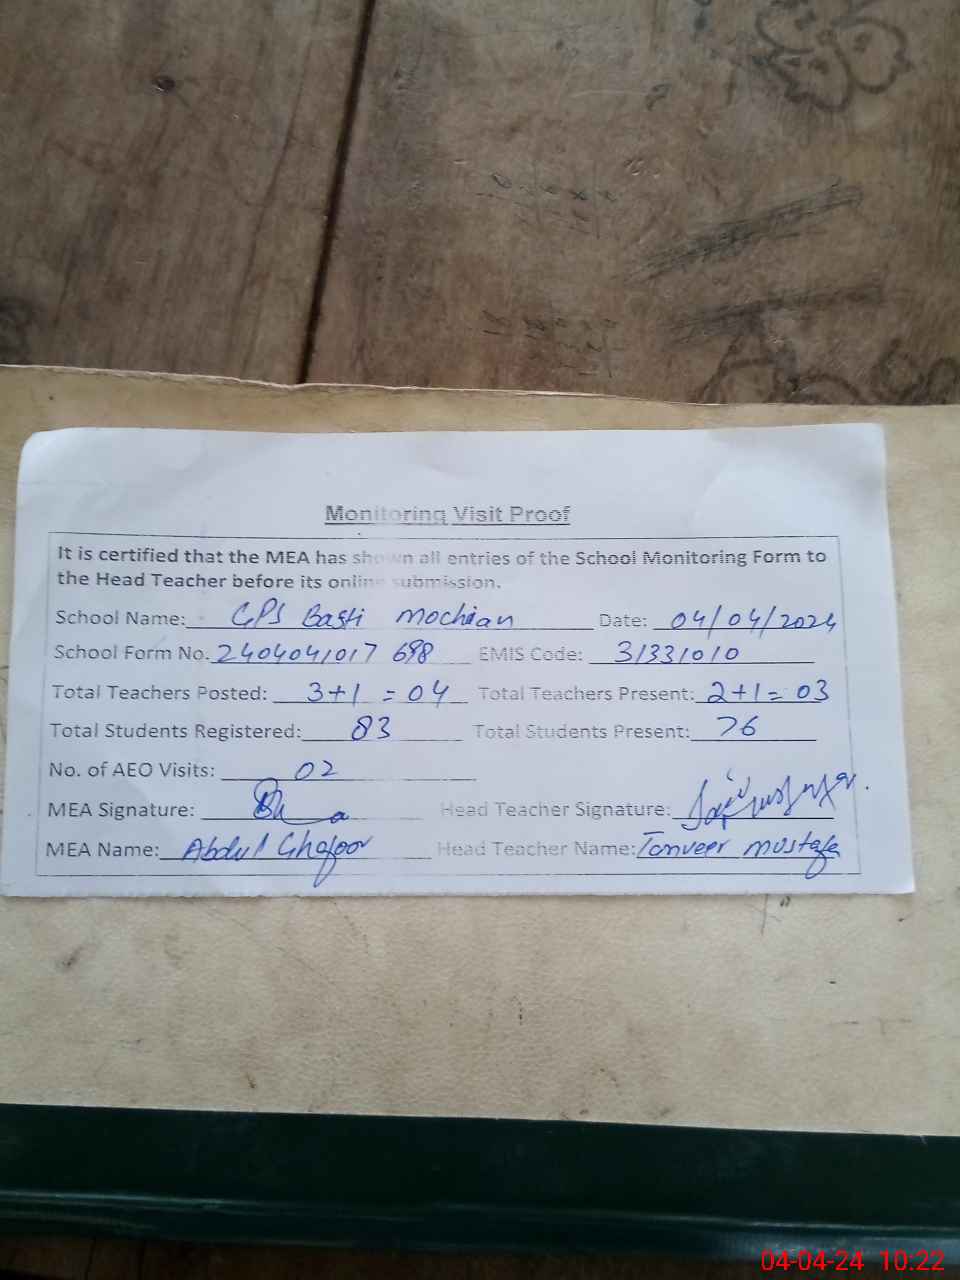 Monitoring Visit Proof
It is certified that the MEA has shown all entries of the School Monitoring Form to
the Head Teacher before its online submission.
School Name: GPS Basti Mochian Date: 04/04/2024
School Form No. 2404041017 698 EMIS Code: 31331010
Total Teachers Posted: 3+1 = 04 Total Teachers Present: 2+1= 03
Total Students Registered: 83 Total Students Present: 76
No. of AEO Visits: 02
MEA Signature: Head Teacher Signature:
MEA Name: Abdul Ghafoor Head Teacher Name: Tanveer mustafa
04-04-24 10:22